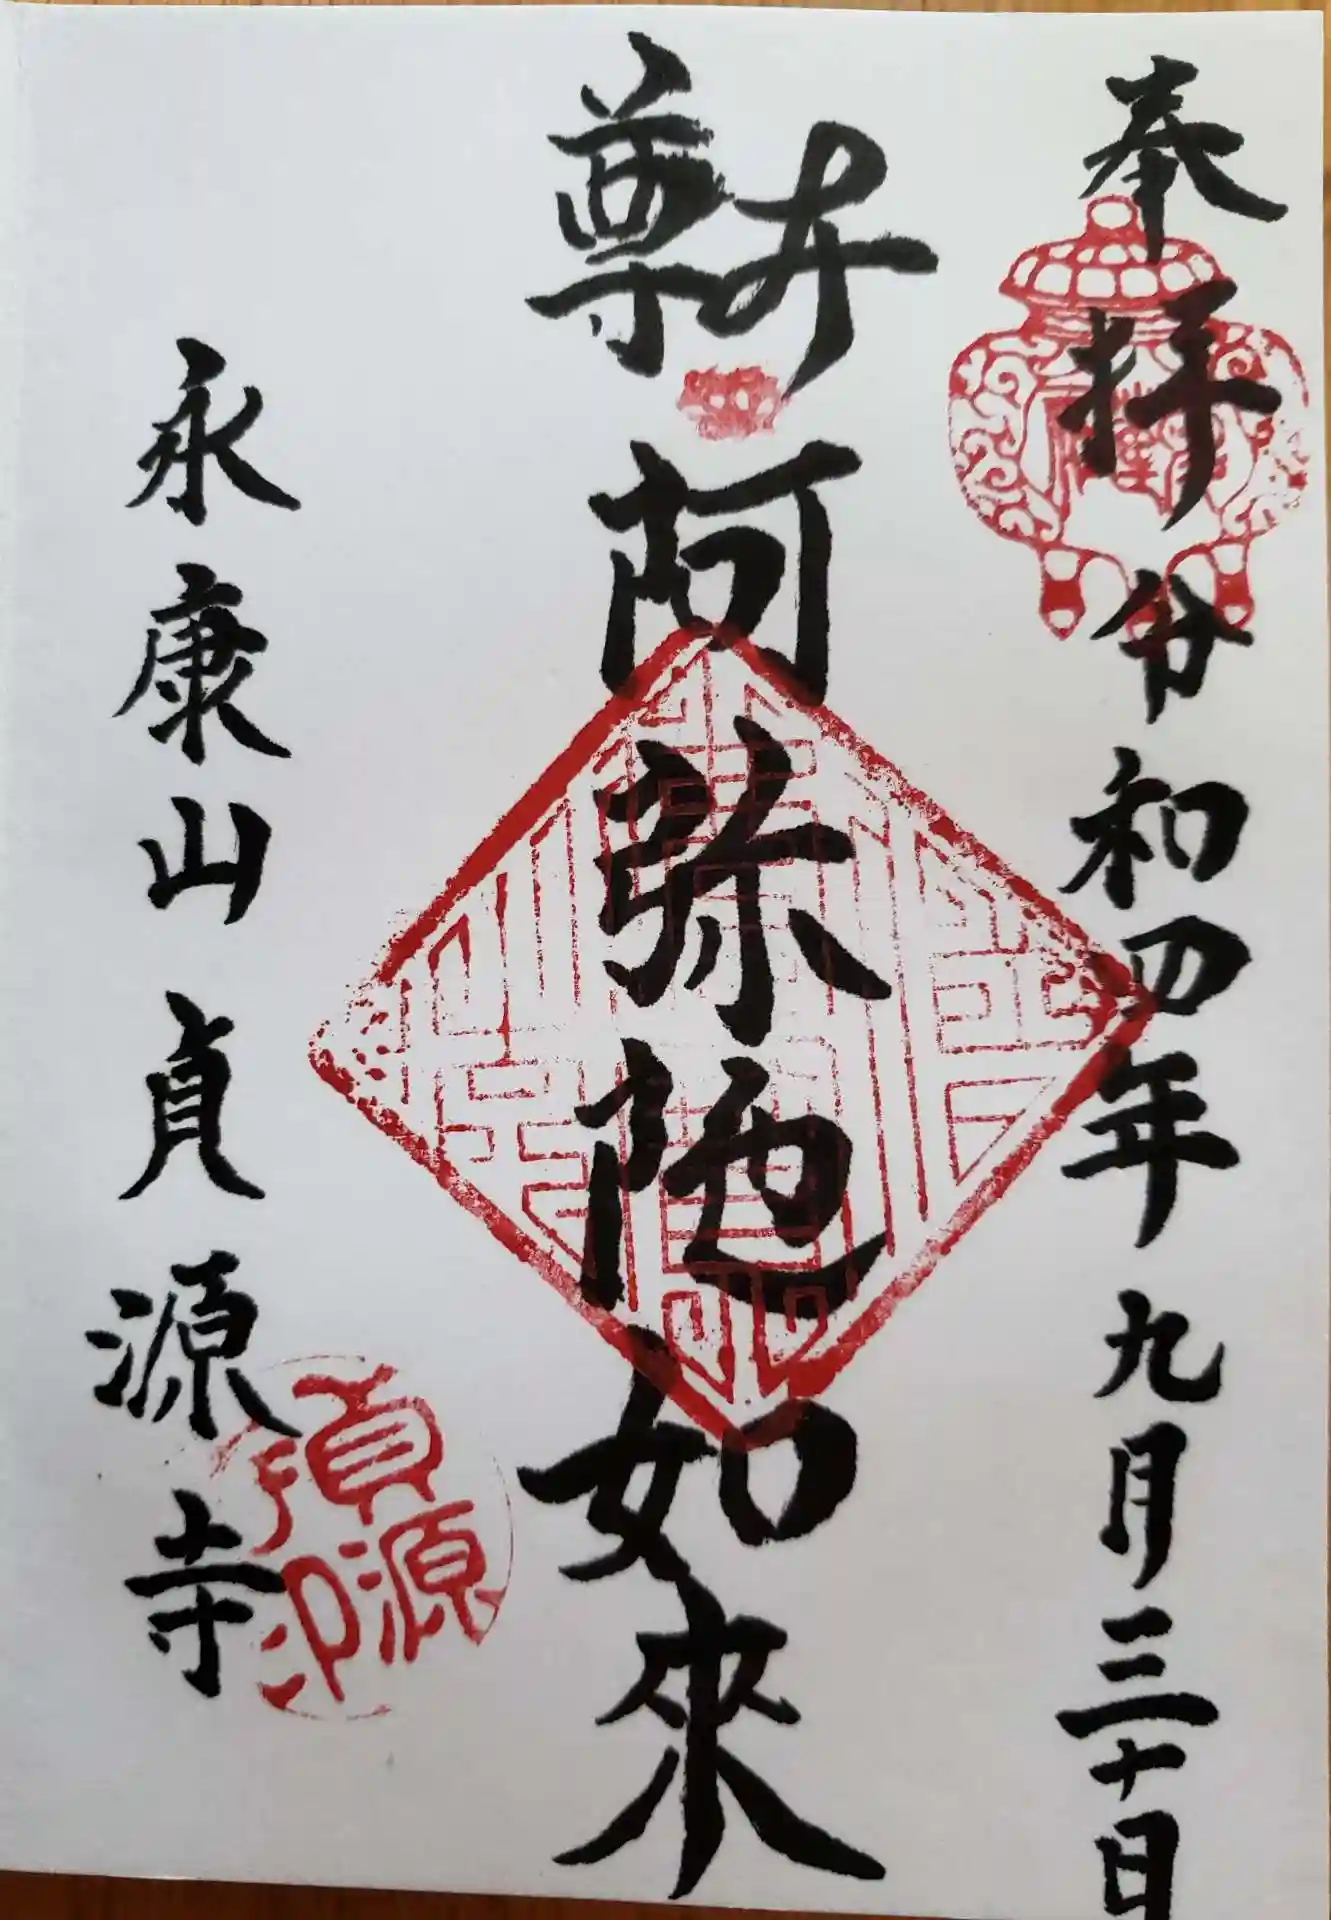 奉拝 令和四年九月三十日
本尊
阿弥陀如來
永康山 貞源寺
貞源寺印